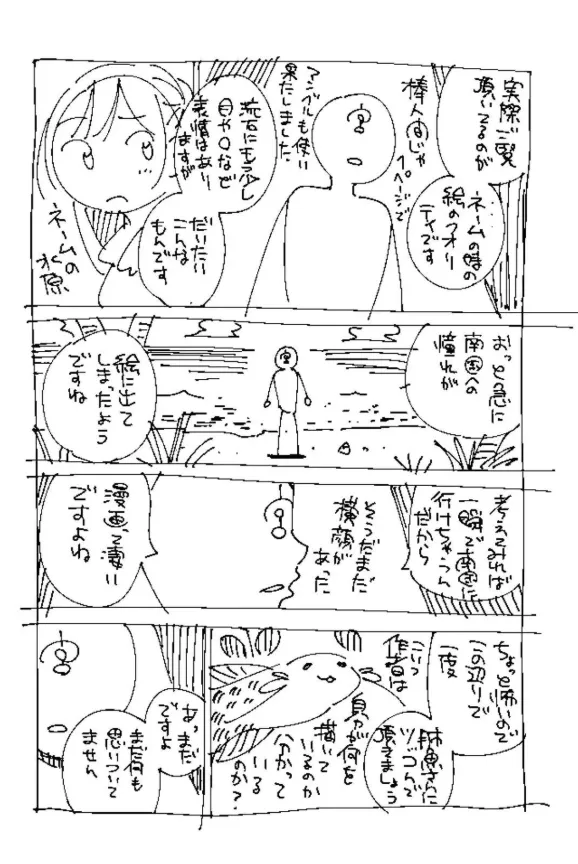 実際ご覧
頂いてるのが
ネームの時の
絵のクオリ
ティです
棒人間じゃ
1ページで
アングルも使い
果たしました
流石にもう少し
目や口など
表情はあり
ますが
だいたい
こんな
もんです
ネームの
水原
おっと急に
南国への
憧れが
絵に出て
しまったよう
ですね
考えてみれば
一瞬で南国に
行けちゃうん
だから
そうだまだ
横顔が
あった
漫画って凄い
ですよね
ちょっと怖いので
この辺りで
一度
肺魚さんに
ツッコんで
頂きましょう
こいつ
作者は
自分が何を
描いて
いるのか
分かって
いる
のか?
あっまだ
ですよ
まだ何も
思いついて
ません